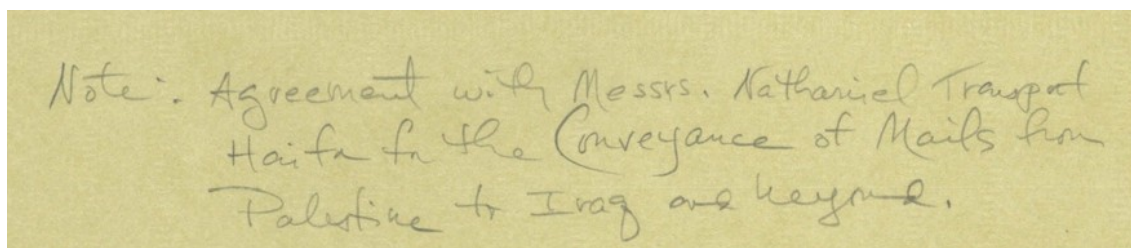 Note: Agreement with Messrs. Nathaniel Transport
Haifa for the Conveyance of Mails from
Palestine to Iraq and beyond.